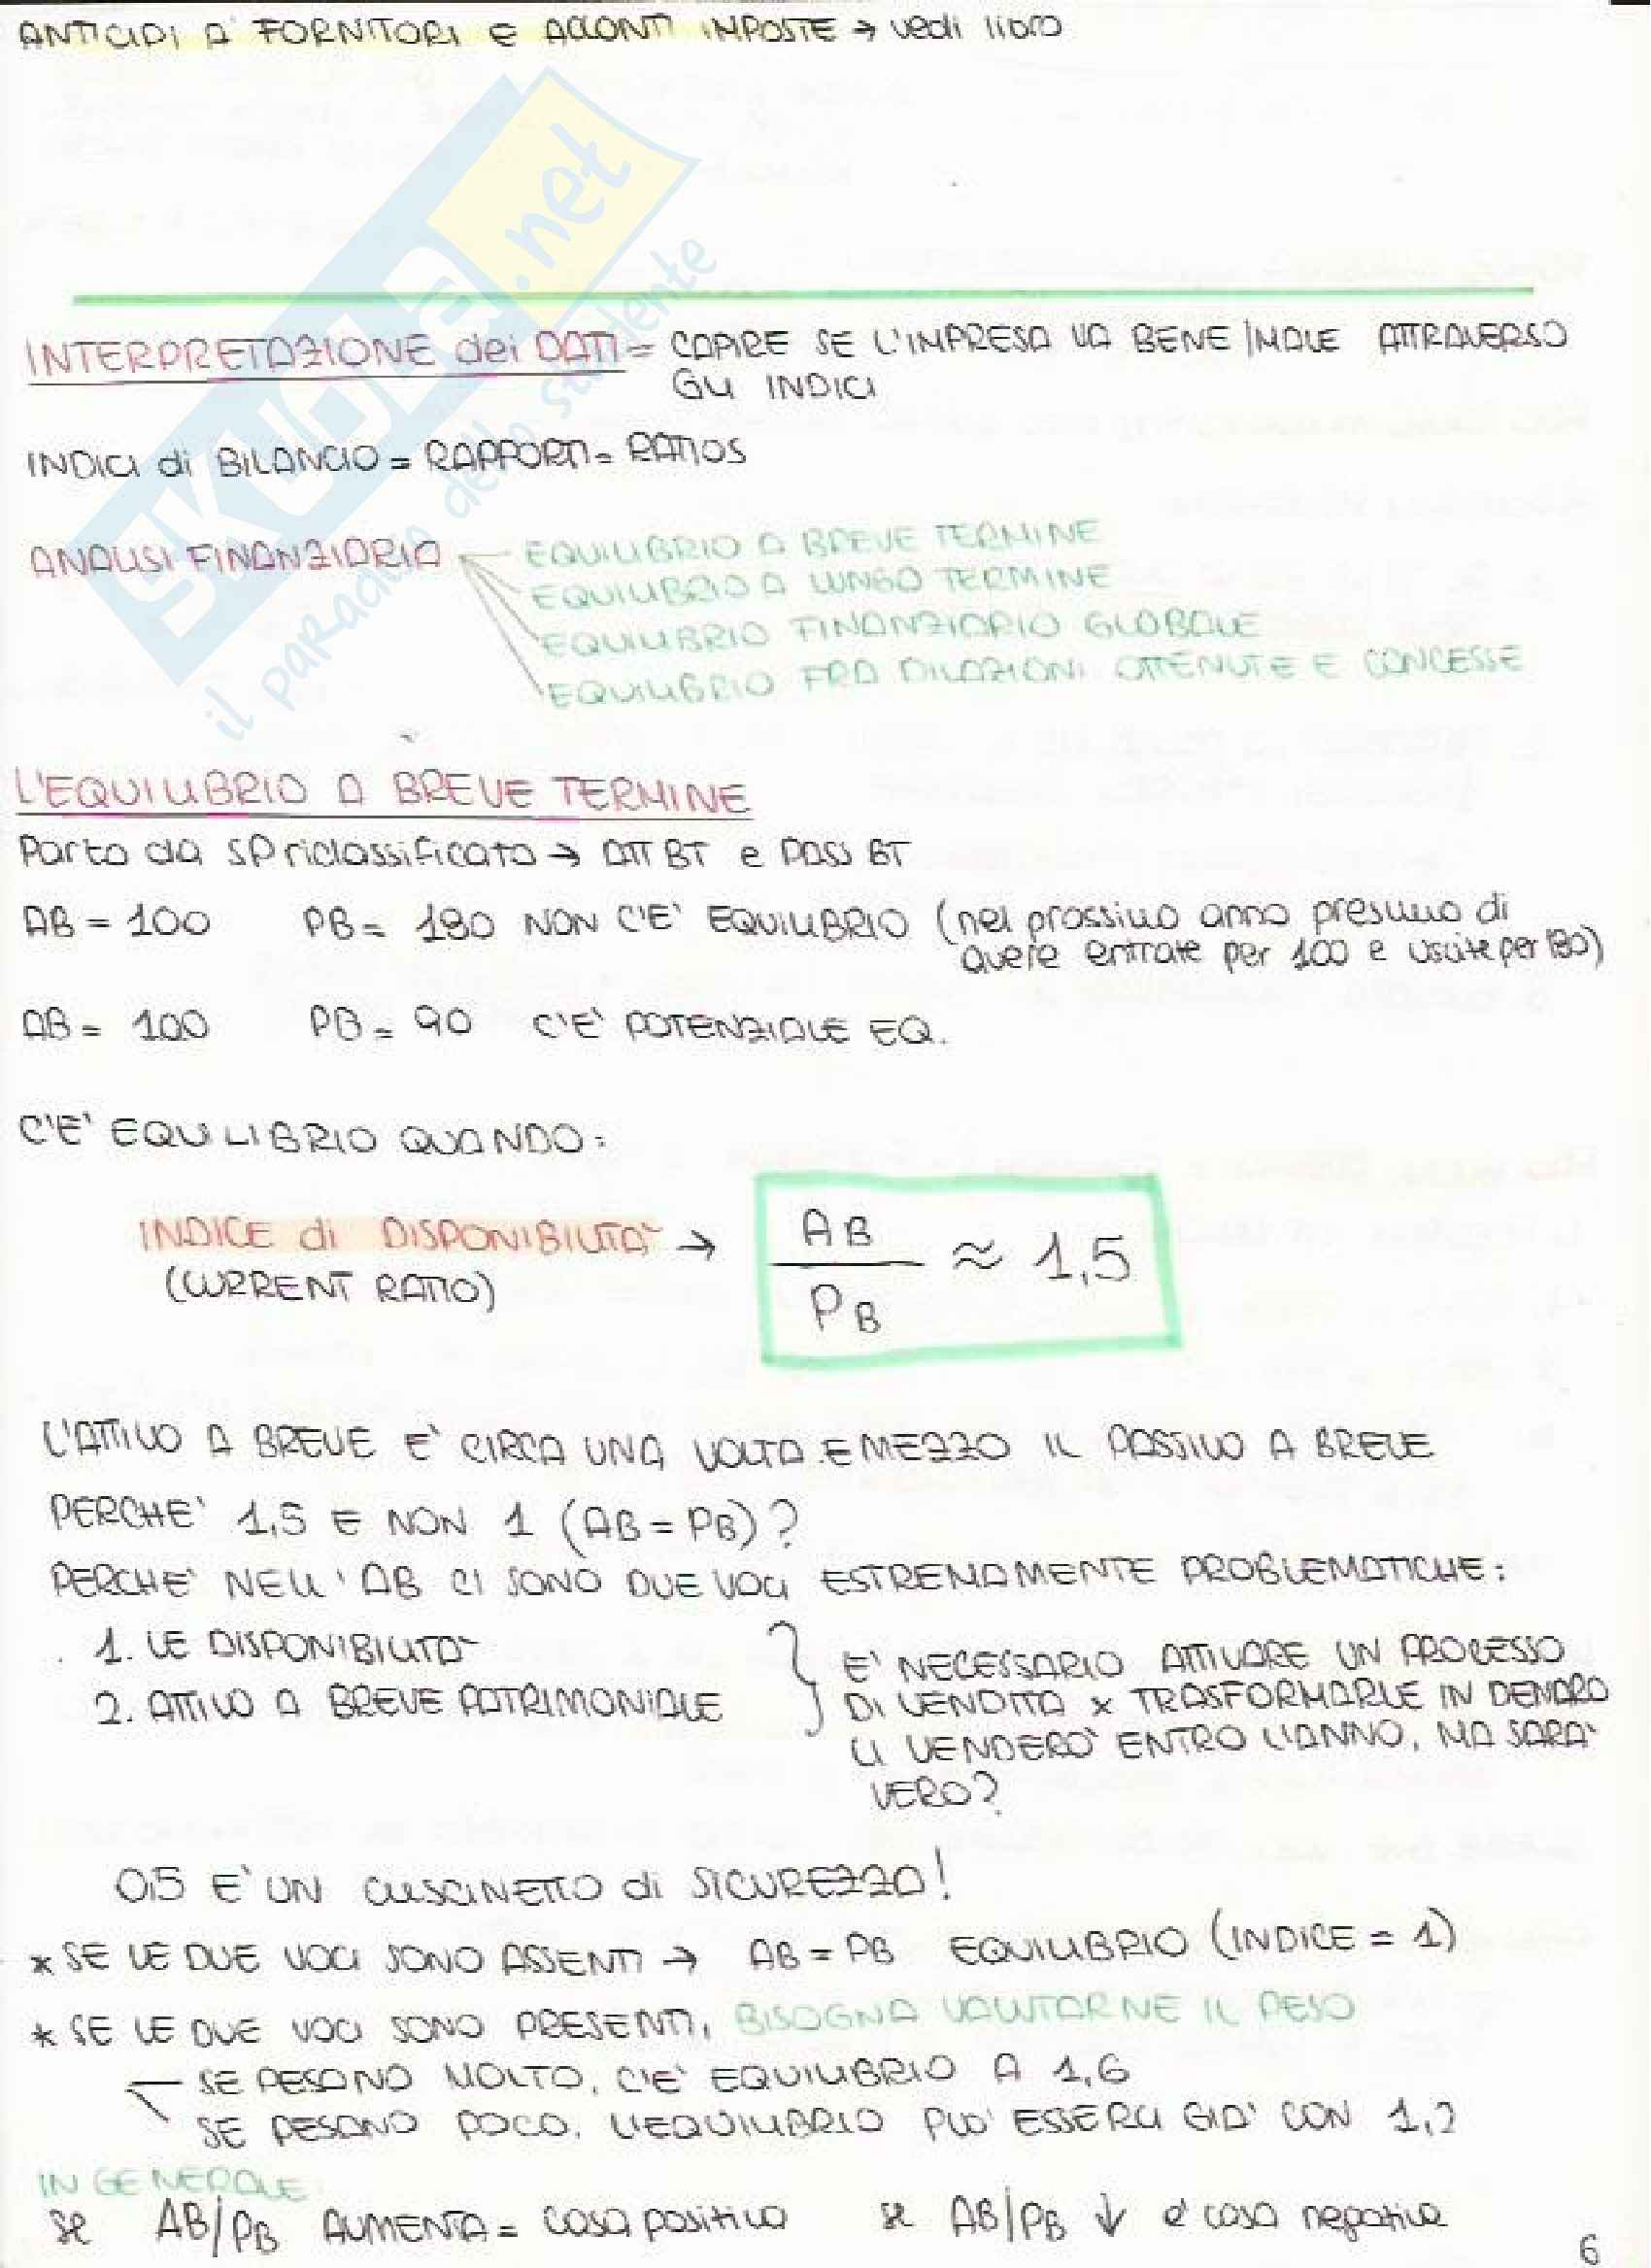 ANTICIPI A' FORNITORI e ACCONTI IMPOSTE → vedi libro
SKUOLA.net
il paradiso dello studente
INTERPRETAZIONE dei DATI = CAPIRE SE L'IMPRESA VA BENE/MALE ATTRAVERSO
GLI INDICI
INDICI di BILANCIO = RAPPORTI = RATIOS
ANALISI FINANZIARIA
EQUILIBRIO A BREVE TERMINE
EQUILIBRIO A LUNGO TERMINE
EQUILIBRIO FINANZIARIO GLOBALE
EQUILIBRIO FRA DILAZIONI OTTENUTE E CONCESSE
L'EQUILIBRIO A BREVE TERMINE
Parto da SP riclassificato → ATT BT e PASS BT
AB = 100 PB = 180 NON C'E' EQUILIBRIO (nel prossimo anno presumo di
avere entrate per 100 e uscite per 180)
AB = 100 PB = 90 C'E' POTENZIALE EQ.
C'E' EQUILIBRIO QUANDO:
INDICE di DISPONIBILITA' → AB / PB ≈ 1,5
(CURRENT RATIO)
L'ATTIVO A BREVE E' CIRCA UNA VOLTA E MEZZO IL PASSIVO A BREVE
PERCHE' 1,5 E NON 1 (AB = PB)?
PERCHE' NELL'AB CI SONO DUE VOCI ESTREMAMENTE PROBLEMATICHE:
1. LE DISPONIBILITA'
2. ATTIVO A BREVE PATRIMONIALE
E' NECESSARIO ATTIVARE UN PROCESSO
DI VENDITA x TRASFORMARLE IN DENARO
LI VENDERO' ENTRO L'ANNO, MA SARA'
VERO?
0,5 E' UN CUSCINETTO di SICUREZZA!
* SE LE DUE VOCI SONO ASSENTI → AB = PB EQUILIBRIO (INDICE = 1)
* SE LE DUE VOCI SONO PRESENTI, BISOGNA VALUTARNE IL PESO
SE PESANO MOLTO, C'E' EQUILIBRIO A 1,6
SE PESANO POCO, L'EQUILIBRIO PUO' ESSERCI GIA' CON 1,2
IN GENERALE
se AB/PB AUMENTA = cosa positiva se AB/PB ↓ è cosa negativa
6